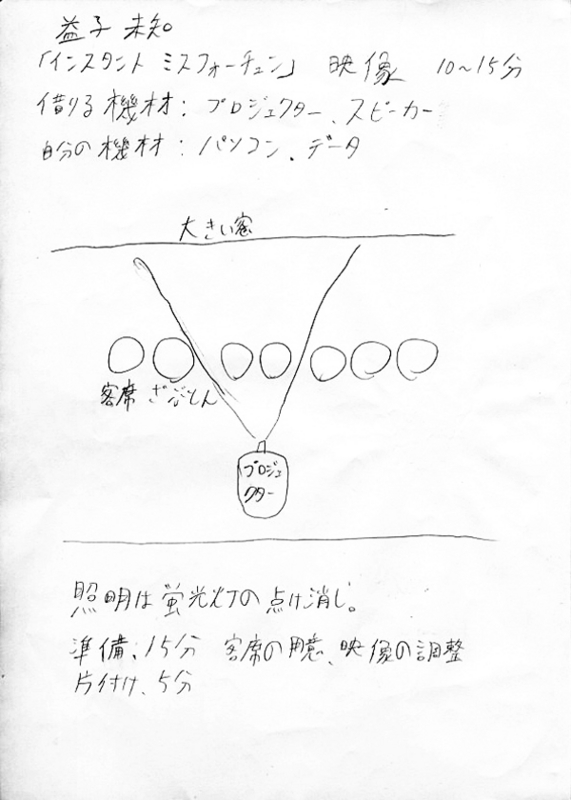 益子 未知
「インスタント ミスフォーチュン」 映像 10～15分
借りる機材: プロジェクター、スピーカー
自分の機材: パソコン、データ
大きい窓
客席 ざぶとん
プロジェ
クター
照明は蛍光灯の点け消し。
準備、15分 客席の用意、映像の調整
片付け、5分